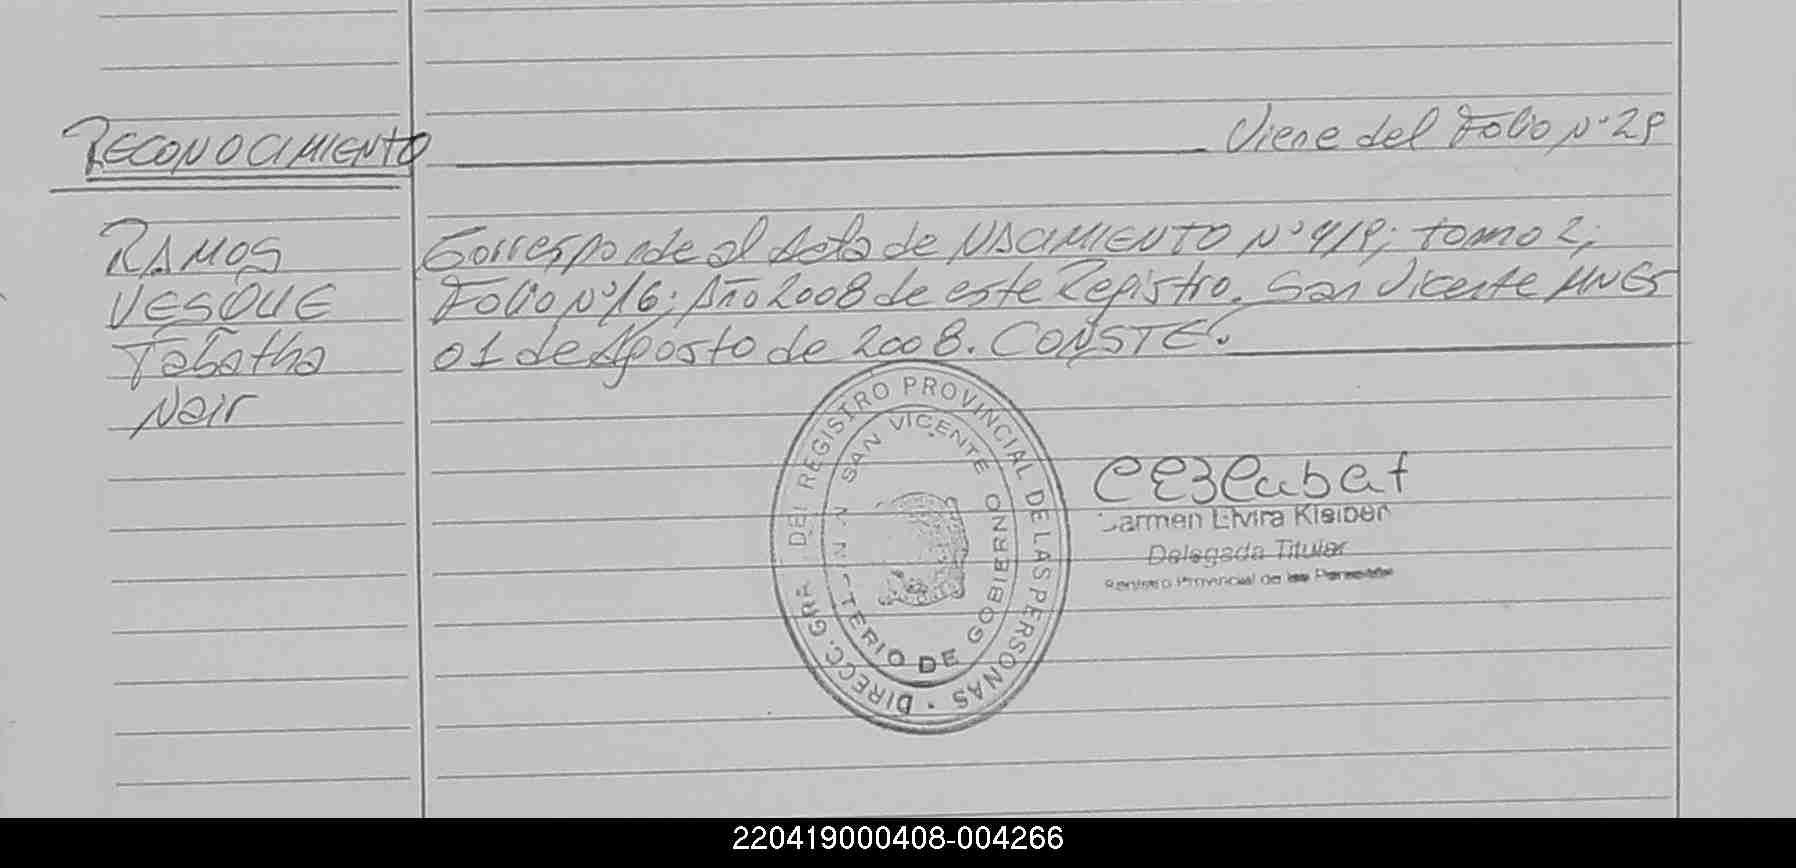 RECONOCIMIENTO Viene del Folio Nº 29
RAMOS Corresponde al Acta de NACIMIENTO Nº 419; tomo 2;
VESQUE Folio Nº 16; Año 2008 de este Registro. San Vicente MNES
Tabatha 01 de Agosto de 2008. CONSTE.
Nair
DIRECC. GRAL DEL REGISTRO PROVINCIAL DE LAS PERSONAS
SAN VICENTE
TERIO DE GOBIERNO
Carmen Elvira Kleiber
Delegada Titular
Registro Provincial de las Personas
220419000408-004266